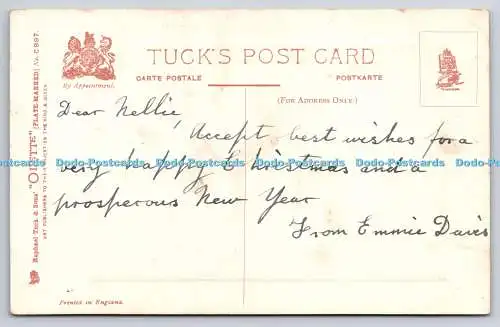 TUCK'S POST CARD
By Appointment.
CARTE POSTALE
POSTKARTE
(FOR ADDRESS ONLY.)
Raphael Tuck & Sons' "OILETTE" [PLATE-MARKED] No. C 997.
ART PUBLISHERS TO THEIR MAJESTIES THE KING & QUEEN
Dear Nellie,
Accept best wishes for a
very happy Christmas and a
prosperous New Year
From Emmie Davis
Dado-Postcards Dado-Postcards Dado-Postcards Dado-Postcards
Printed in England.